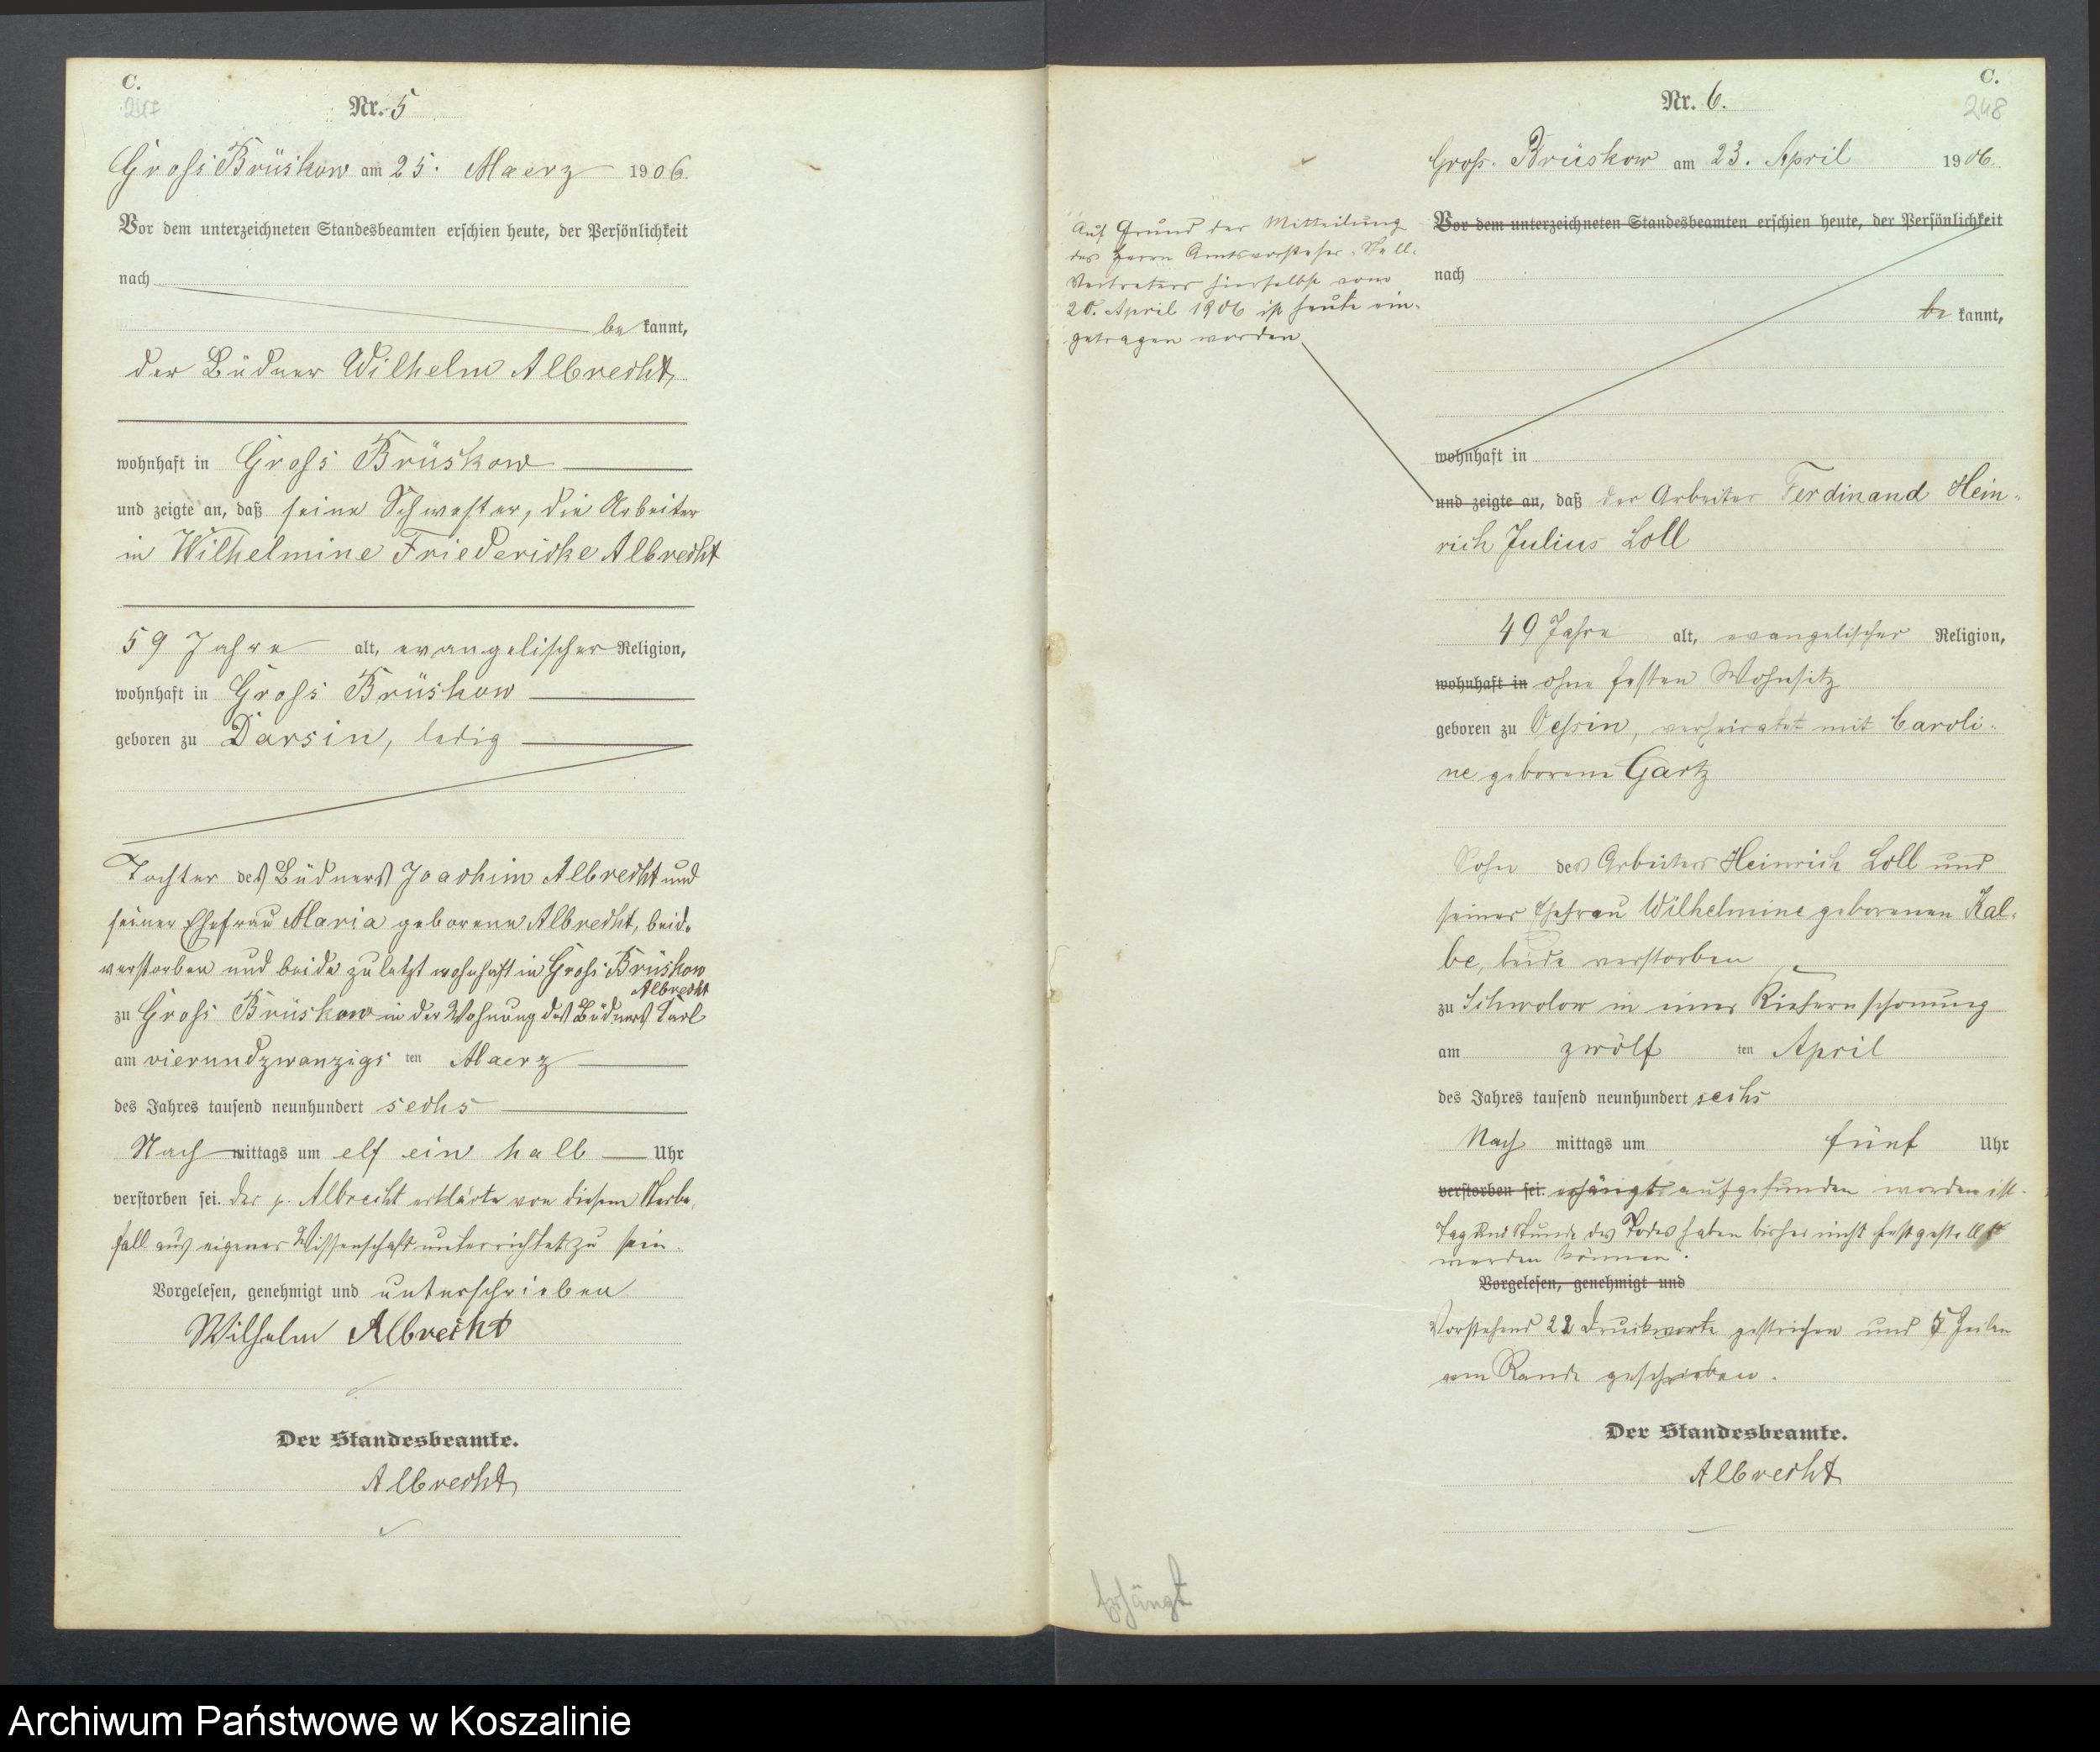 C.
247
Nr. 5
Gross Brüskow am 25. Maerz 1906
Vor dem unterzeichneten Standesbeamten erschien heute, der Persönlichkeit
nach
be kannt,
der Büdner Wilhelm Albrecht,
wohnhaft in Gross Brüskow
und zeigte an, daß seine Schwester, die Arbeiter
in Wilhelmine Friedericke Albrecht
59 Jahre alt, evangelischer Religion,
wohnhaft in Gross Brüskow
geboren zu Darsin, ledig
Tochter des Büdners Joachim Albrecht und
seiner Ehefrau Maria geborene Albrecht, beide
verstorben und beide zuletzt wohnhaft in Gross Brüskow
Albrecht
zu Gross Brüskow in der Wohnung des Büdners Carl
am vierundzwanzigs ten Maerz
des Jahres tausend neunhundert sechs
Nach mittags um elf ein halb Uhr
verstorben sei. Der p. Albrecht erklärte von diesem Sterbe-
fall aus eigener Wissenschaft unterrichtet zu sein.
Vorgelesen, genehmigt und unterschrieben
Wilhelm Albrecht
Der Standesbeamte.
Albrecht
C.
248
Nr. 6.
Gross Brüskow am 23. April 1906
Auf Grund der Mitteilung
des Herrn Amtsvorsteher-Stell-
Vertreters hierselbst vom
20. April 1906 ist heute ein-
getragen worden
Vor dem unterzeichneten Standesbeamten erschien heute, der Persönlichkeit
nach
be kannt,
wohnhaft in
und zeigte an, daß der Arbeiter Ferdinand Hein-
rich Julius Loll
49 Jahre alt, evangelischer Religion,
wohnhaft in ohne festen Wohnsitz
geboren zu Dessin, verheiratet mit Caroli-
ne geborene Gartz
Sohn des Arbeiters Heinrich Loll und
seiner Ehefrau Wilhelmine geborenen Kal-
be, beide verstorben
zu Schwolow in einer Kiefernschonung
am zwölf ten April
des Jahres tausend neunhundert sechs
Nach mittags um fünf Uhr
verstorben sei. erhängt aufgefunden worden ist.
Tag und Stunde des Todes haben bisher nicht festgestellt
werden können.
Vorgelesen, genehmigt und
Vorstehend 22 Druckworte gestrichen und 5 Zeilen
am Rande geschrieben.
Der Standesbeamte.
Albrecht
Erhängt
Archiwum Państwowe w Koszalinie